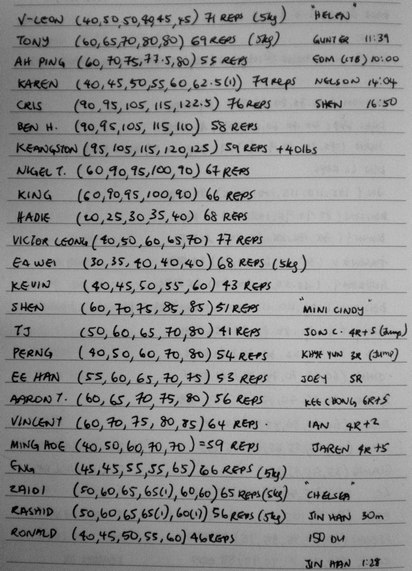 V-LEON (40,50,50,45,45) 71 REPS (5kg) "HELEN"
TONY (60,65,70,80,80) 69 REPS (5kg) GUNTER 11:39
AH PING (60,70,75,77.5,80) 55 REPS EDM (LTB) 10:00
KAREN (40,45,50,55,60,62.5(1)) 79 REPS NELSON 14:04
CRIS (90,95,105,115,122.5) 76 REPS SHEN 16:50
BEN H. (90,95,105,115,110) 58 REPS
KEANGSTON (95,105,115,120,125) 59 REPS +40lbs
NIGEL T. (60,90,95,100,90) 67 REPS
KING (60,90,95,100,90) 66 REPS
HADIE (20,25,30,35,40) 68 REPS
VICTOR LEONG (40,50,60,65,70) 77 REPS
EA WEI (30,35,40,40,40) 68 REPS (5kg)
KEVIN (40,45,50,55,60) 43 REPS
SHEN (60,70,75,85,85) 51 REPS "MINI CINDY"
TJ (50,60,65,70,80) 41 REPS JON C. 4R+5 (Jump)
PERNG (40,50,60,70,80) 54 REPS KHYE YUN 3R (Jump)
EE HAN (55,60,65,70,75) 53 REPS JOEY 5R
AARON T. (60,65,70,75,80) 56 REPS KEE CHONG 6R+5
VINCENT (60,70,75,80,85) 64 REPS. IAN 4R+2
MING HOE (40,50,60,70,70) = 59 REPS JAREN 4R+5
ENG (45,45,55,55,65) 66 REPS (5kg)
ZAIDI (50,60,65,65(1),60,60) 65 REPS (5kg) "CHELSEA"
RASHID (50,60,65,65(1),60(1)) 56 REPS (5kg) JIN HAN 30m
RONALD (40,45,50,55,60) 46 REPS 150 DU
JIN HAN 1:28